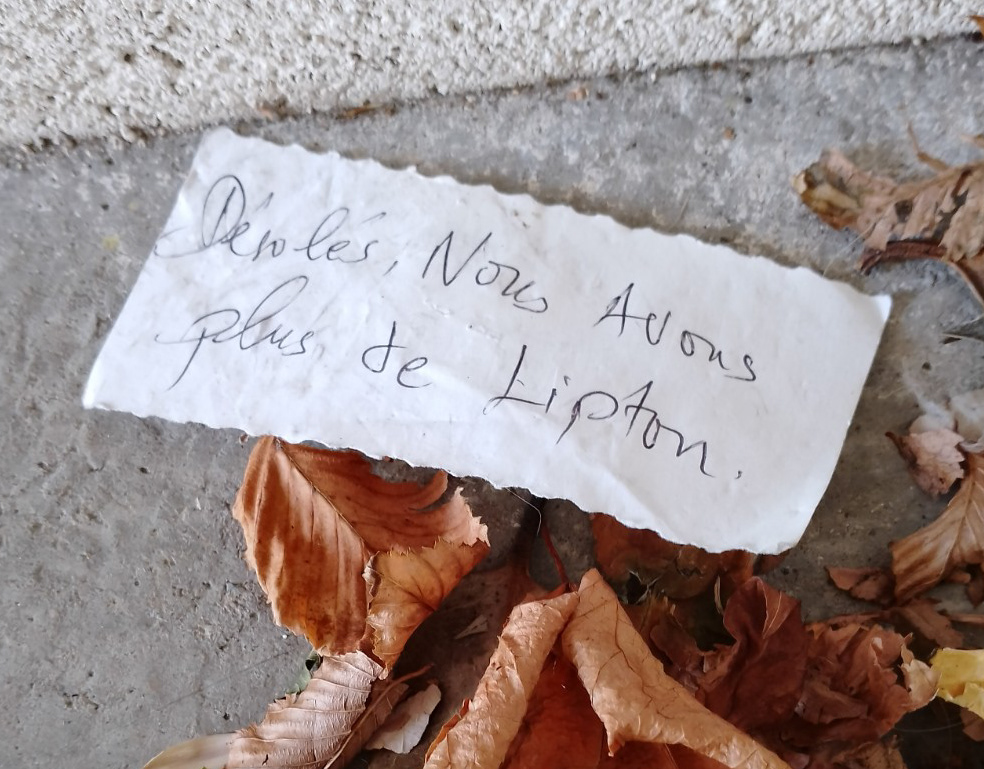 Désolés, Nous Avons
plus de Lipton.